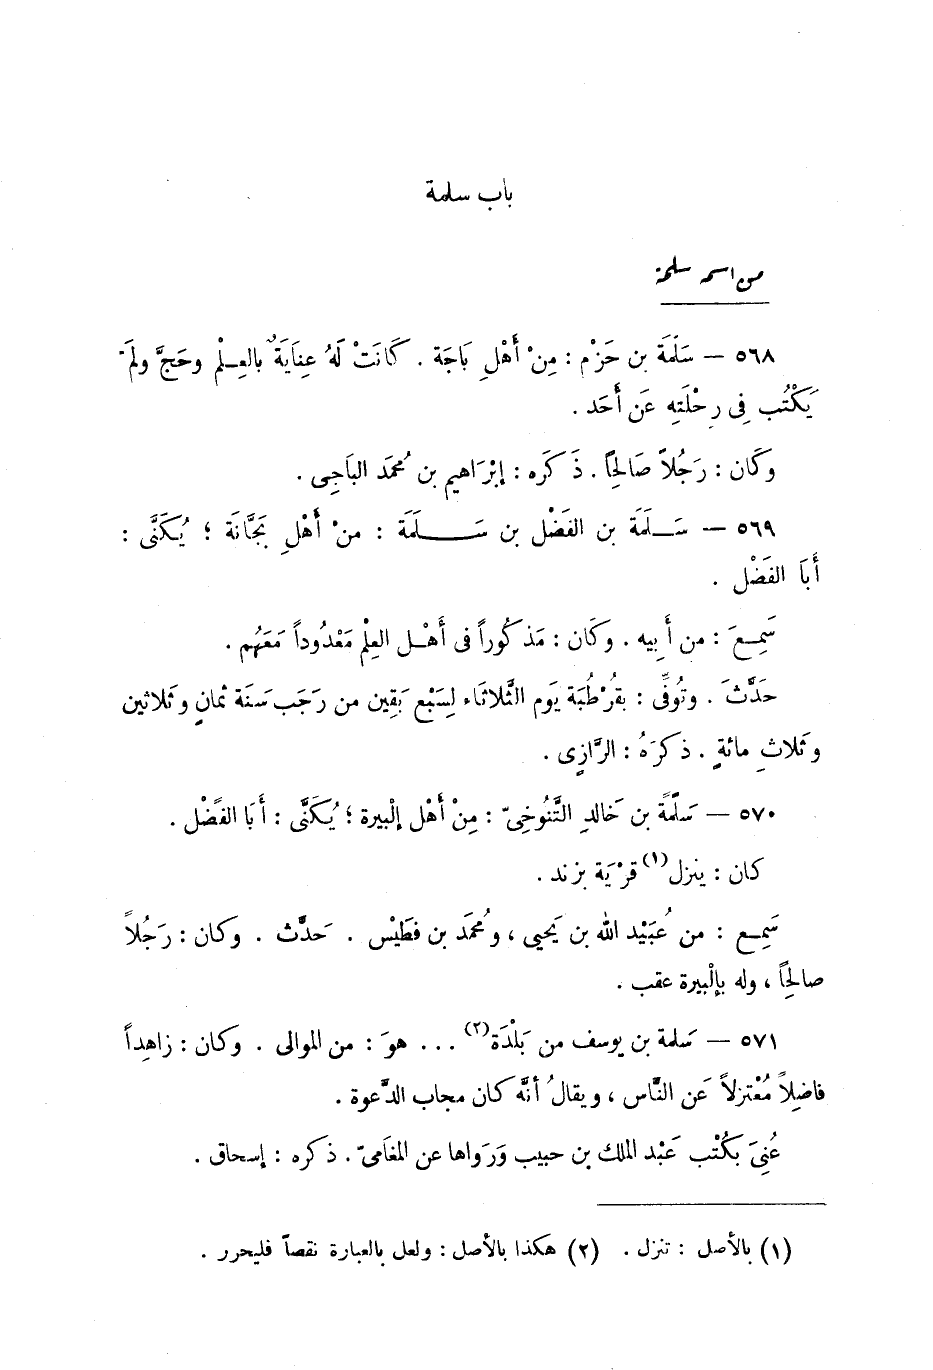 باب سلمة
من اسمه سلمة
٥٦٨ — سَلَمَة بن حَزْم : مِنْ أَهْلِ بَاجَة . كَانَتْ لَهُ عِنايَةٌ بالعِـلْم وحَجَّ ولَمْ
يَكْتُب فِى رِحْلَتِه عَن أَحَد .
وكَان : رَجُلاً صَالِحًا . ذَكَره : إِبْرَاهيم بن مُحمَد البَاجِى .
٥٦٩ — سَـلَمَة بن الفَضْل بن سَـــلَمَة : من أَهْلِ بَجَّانَة ؛ يُكَنَّى :
أَبَا الفَضْل .
سَمِـعَ : من أَبِيه . وكَان : مَذكُوراً فى أَهْـل العِلْم مَعْدُوداً مَعَهُم .
حَدَّثَ . وتُوفِّىَ : بقُرْطُبَة يَوم الثَّلاثَاء لِسَبْع بَقِين من رَجَب سَنَة ثمانٍ وثَلاثين
وثَلاثِ مائةٍ . ذكرَهُ : الرَّازِى .
٥٧٠ — سَلَمَة بن خَالدِ التَّنُوخِىّ : مِنْ أَهْل إِلْبيرة ؛ يُكَنَّى : أَبَا الفَضْل .
كان : ينزل(١) قرْيَة بزند .
سَمِـع : من عُبَيْد الله بن يَحيى ، ومُحمَد بن فطَيْس . حَدَّث . وكان : رَجُلاً
صالِحًا ، وله بإلْبيرة عقب .
٥٧١ — سَلمة بن يوسف من بَلْدَة(٢) ... هوَ : من الموالى . وكان : زاهِداً
فاضِلاً مُعْتزلاً عَن النَّاس ، ويقالُ أنَّه كان مجاب الدَّعوة .
عُنِىَ بكُتْب عَبْد الملك بن حبيب وَرَواها عن المغَامىّ . ذكره : إسحاق .
(١) بالأصل : تنزل . (٢) هكذا بالأصل : ولعل بالعبارة نقصاً فليحرر .